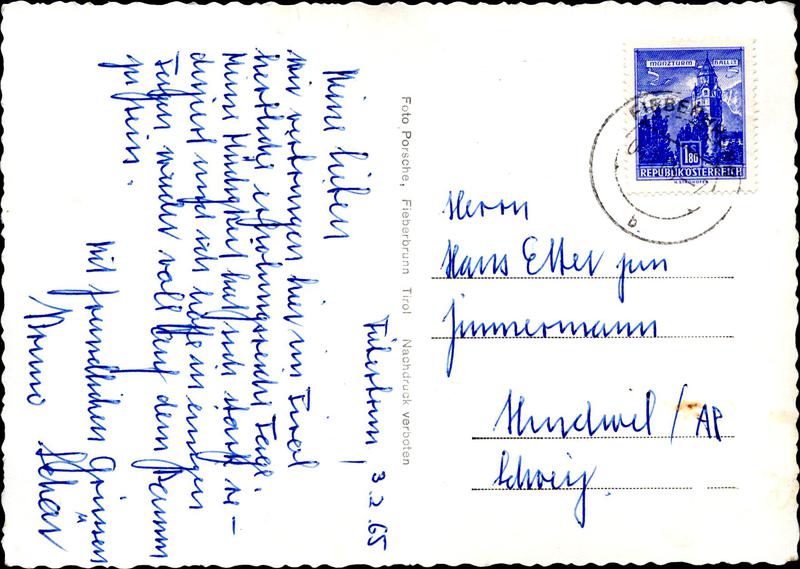 Fieberbrunn, 3.2.65
Meine lieben
wir verbringen hier im Tirol
herrliche erholungsreiche Tage.
Meine Müdigkeit hat sich stark re-
duziert und ich hoffe in einigen
Tagen wieder voll auf dem Damm
zu sein.
Mit freundlichen Grüssen
Bruno
Foto Porsche, Fieberbrunn Tirol Nachdruck verboten
MÜNZTURM HALL i.T.
S S
1.80
REPUBLIK ÖSTERREICH
FIEBERBRUNN
b
Herrn
Hans Etter jun
Zimmermann
Hundwil / AR
Schweiz